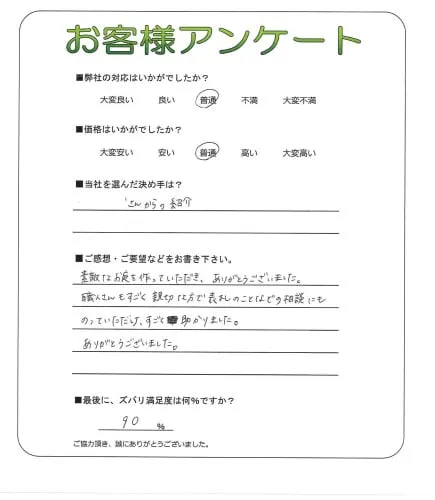 お客様アンケート
■弊社の対応はいかがでしたか？
大変良い 良い 普通 不満 大変不満
■価格はいかがでしたか？
大変安い 安い 普通 高い 大変高い
■当社を選んだ決め手は？
さんからの紹介
■ご感想・ご要望などをお書き下さい。
素敵なお庭を作っていただき、ありがとうございました。
職人さんもすごく親切な方で表札のことなどの相談にも
のっていただけ、すごく助かりました。
ありがとうございました。
■最後に、ズバリ満足度は何％ですか？
90 %
ご協力頂き、誠にありがとうございました。